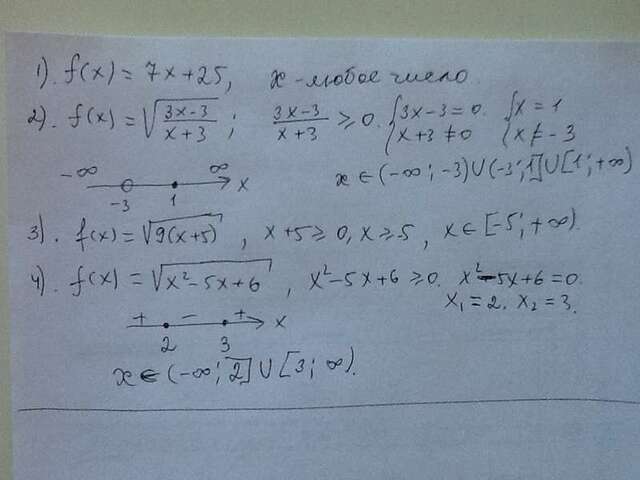 1). f(x) = 7x+25, x - любое число.
2). f(x) = √((3x-3)/(x+3)); (3x-3)/(x+3) ≥ 0. {3x-3=0. x+3≠0 {x=1 x≠-3
-∞ ∞ x x ∈ (-∞; -3)∪(-3; 1]∪[1; +∞)
-3 1
3). f(x) = √(9(x+5)), x+5 ≥ 0, x ≥ 5, x ∈ [-5; +∞).
4). f(x) = √(x²-5x+6), x²-5x+6 ≥ 0. x²-5x+6=0.
x₁=2. x₂=3.
+ - + x
2 3
x ∈ (-∞; 2]∪[3; ∞).